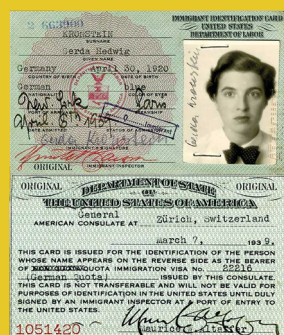 2 663900
IMMIGRANT IDENTIFICATION CARD
UNITED STATES
DEPARTMENT OF LABOR
KRONSTEIN
SURNAME
Gerda Hedwig
GIVEN NAME
Germany April 30, 1920
COUNTRY OF BIRTH DATE OF BIRTH
German blue
NATIONALITY COLOR OF EYES
New York Paris
PORT OF
April 8th
DATE ADMITTED STATUS OF ADMISSION
Immigrant
Gerda Kronstein
IMMIGRANT'S SIGNATURE
ORIGINAL IMMIGRANT INSPECTOR
ORIGINAL DEPARTMENT OF STATE ORIGINAL
OF
THE UNITED STATES OF AMERICA
General
AMERICAN CONSULATE AT Zürich, Switzerland
March 7, 1939.
THIS CARD IS ISSUED FOR THE IDENTIFICATION OF THE PERSON
WHOSE NAME APPEARS ON THE REVERSE SIDE AS THE BEARER
OF QUOTA IMMIGRATION VISA NO. 22216
(German Quota) ISSUED BY THIS CONSULATE.
THIS CARD IS NOT TRANSFERABLE AND WILL NOT BE VALID FOR
PURPOSES OF IDENTIFICATION IN THE UNITED STATES UNTIL DULY
SIGNED BY AN IMMIGRANT INSPECTOR AT A PORT OF ENTRY TO
THE UNITED STATES.
1051420 Maurice W. Altaffer